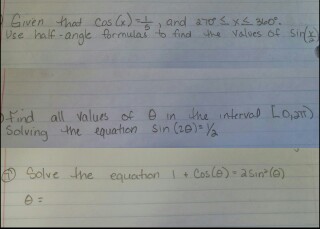 Given that cos(x) = 1/5, and 270° ≤ x ≤ 360°.
Use half-angle formulas to find the values of sin(x/2)
Find all values of θ in the interval [0,2π)
Solving the equation sin(2θ) = 1/2
7 Solve the equation 1 + cos(θ) = 2sin²(θ)
θ =